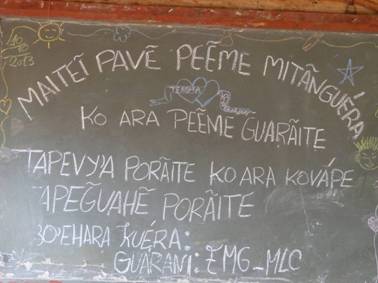 2013
MAITEĨ PAVẼ PEẼME MITÃNGUÉRA
KO ARA PEẼMẼ GUARÃITE
TAPEVY'A PORÃITE KO ARA KOVÁPE
TAPEG̃UAHẼ PORÃITE
BO'EHARA KUÉRA:
GUARANI: ZMG_MLC